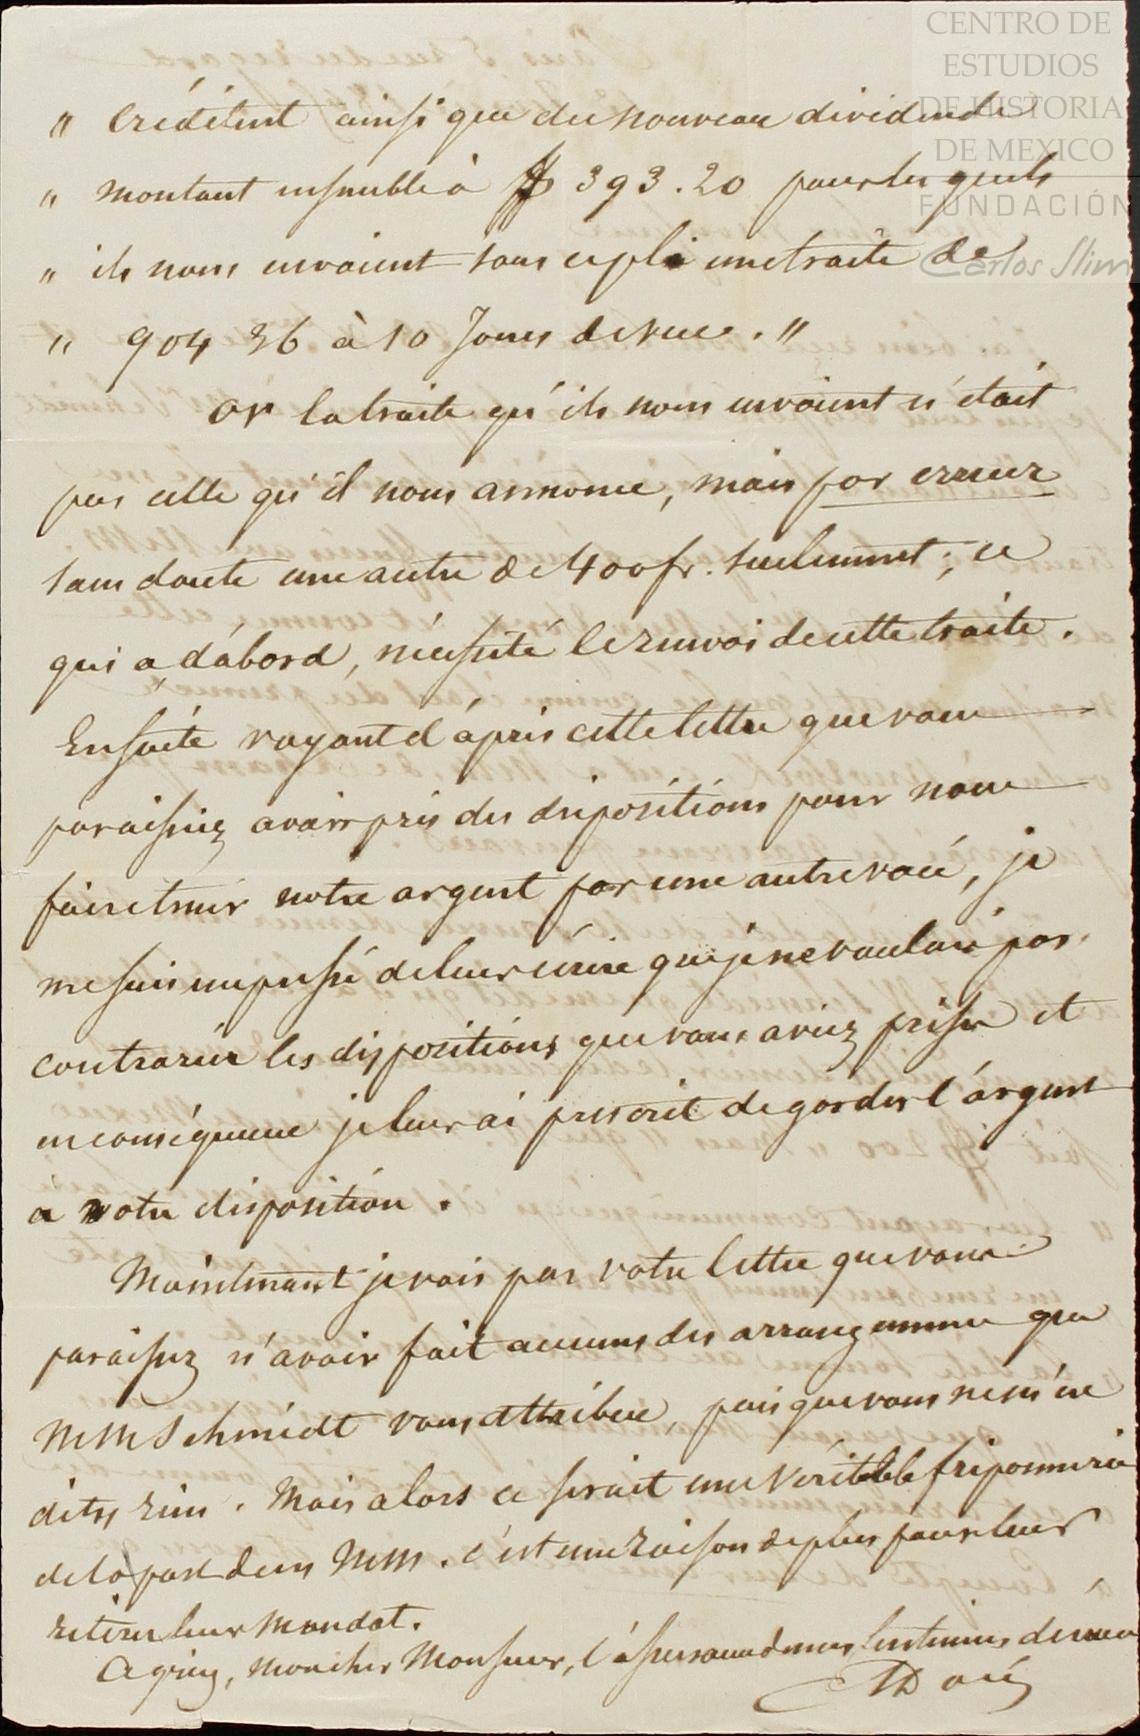 CENTRO DE
ESTUDIOS
DE HISTORIA
DE MEXICO
FUNDACIÓN
Carlos Slim
" créditent ainsi que du nouveau dividende
" montant ensemble à $ 393.20 pour lesquels
" ils nous envoient sous ce pli une traite de
" 904 36 à 10 Jours de vue. "
Or la traite qu'ils nous envoient n'était
pas celle qu'il nous annonce, mais par erreur
sans doute une autre de 400 fr. seulement; ce
qui a d'abord, nécessité le renvoi de cette traite.
Ensuite voyant d'après cette lettre que vous
paraissiez avoir pris des dispositions pour nous
faire tenir notre argent par une autre voie, je
me suis empressé de leur écrire que je ne voulais pas
contrarier les dispositions que vous aviez prises et
en conséquence je leur ai prescrit de garder l'argent
à votre disposition.
Maintenant je vois par votre lettre que vous
paraissez n'avoir fait aucuns des arrangemens que
MM Schmidt vous attribue, puisque vous ne m'en
dites rien. Mais alors ce serait une véritable friponnerie
de la part de ces MM. c'est une raison de plus pour leur
retirer leur mandat.
Agréez, mon cher Monsieur, l'assurance de mes sentimens dévoués